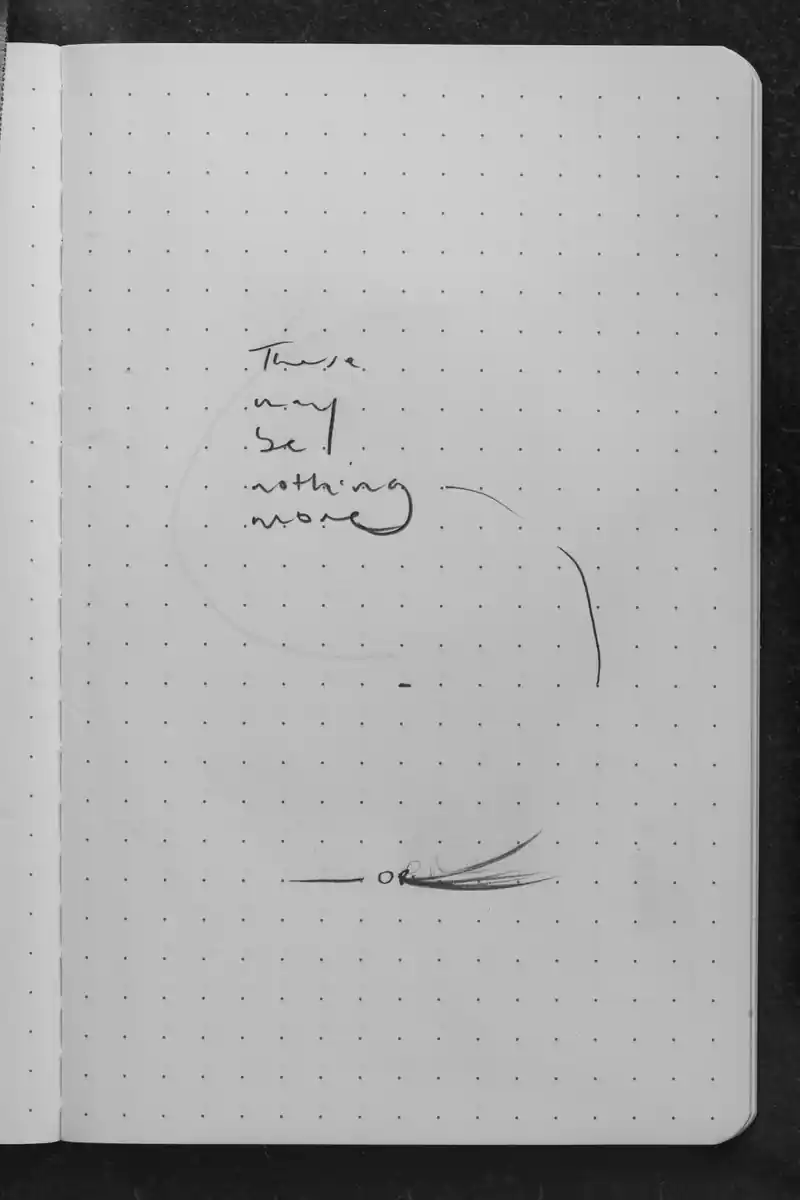 There
may
be
nothing
more
— OR